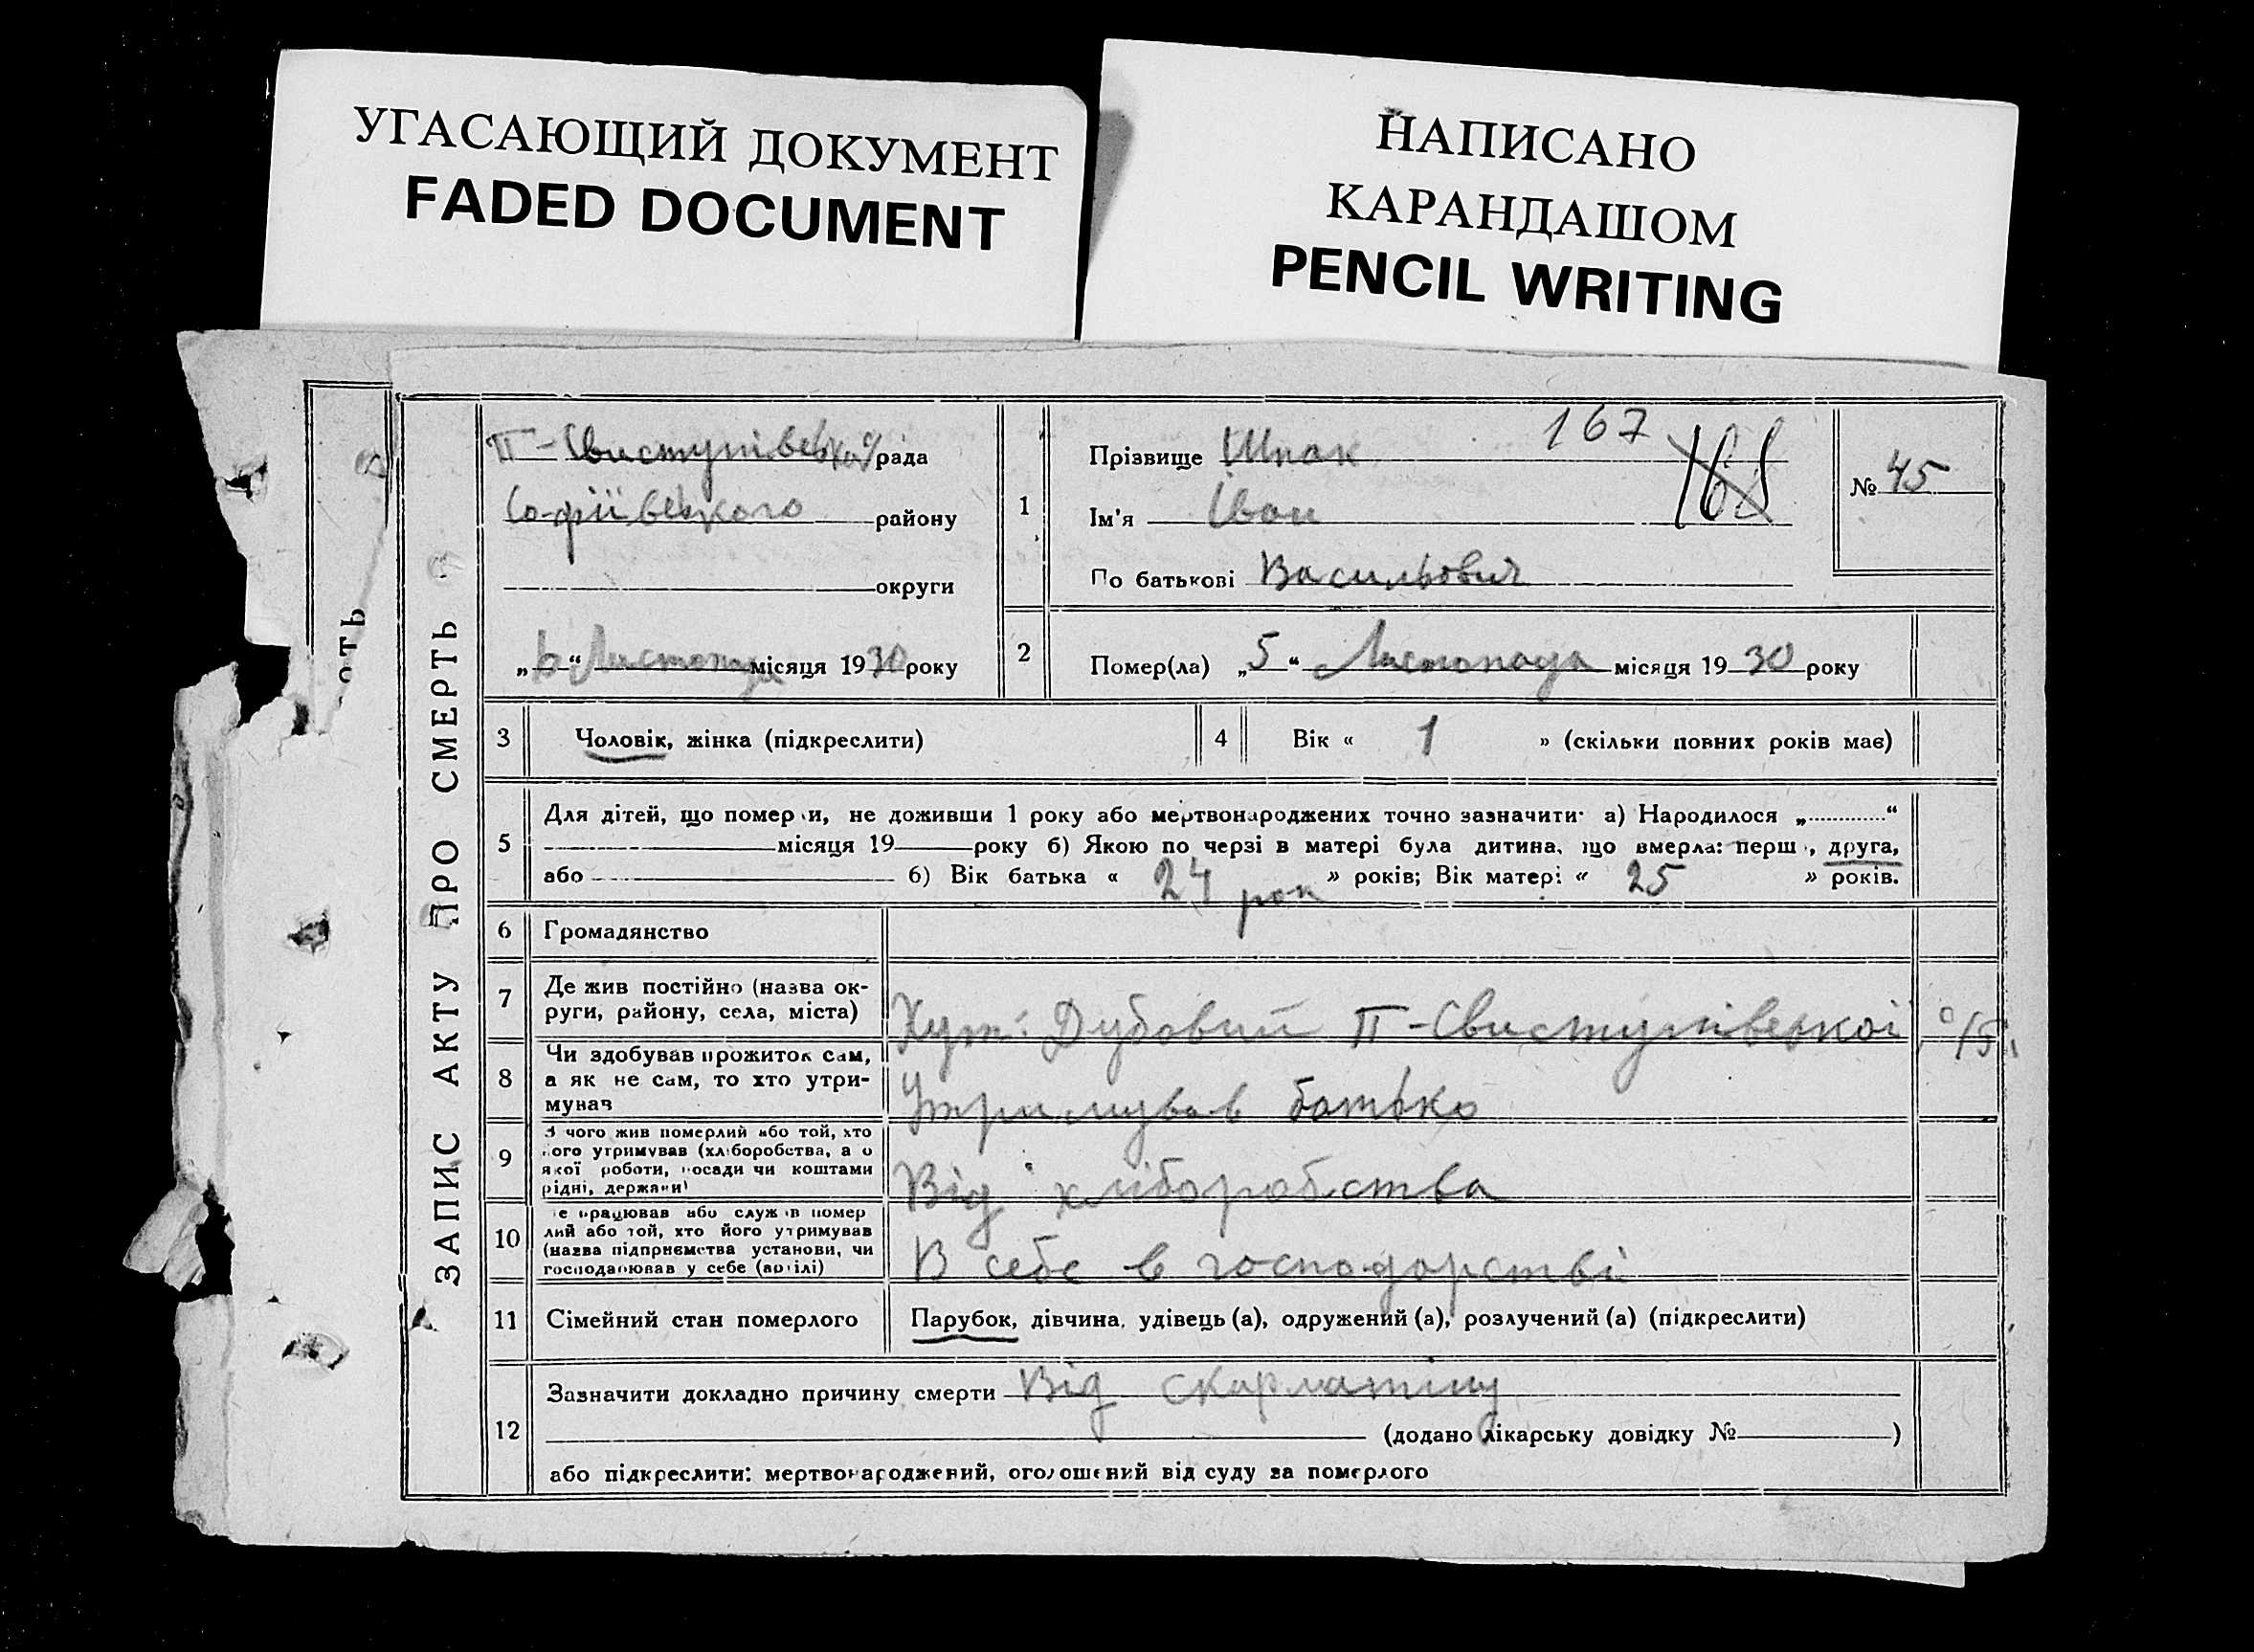 УГАСАЮЩИЙ ДОКУМЕНТ
FADED DOCUMENT
НАПИСАНО
КАРАНДАШОМ
PENCIL WRITING
ОТЬ
ЗАПИС АКТУ ПРО СМЕРТЬ
П-Свистунівської рада
Софіївського району
округи
„6“ Листопада місяця 1930 року
1
Прізвище Шпак
167
168
Ім'я Іван
По батькові Васильович
№ 45
2
Помер(ла) „5“ Листопада місяця 1930 року
3 Чоловік, жінка (підкреслити)
4 Вік « 1 » (скільки повних років має)
5
Для дітей, що померли, не доживши 1 року або мертвонароджених точно зазначити: а) Народилося „.............“
місяця 19 року б) Якою по черзі в матері була дитина, що вмерла: перш , друга,
або б) Вік батька « 24 рок » років; Вік матері « 25 » років.
6 Громадянство
7 Де жив постійно (назва ок-
руги, району, села, міста)
Хут. Дубовий П-Свистунівської с/р.
8 Чи здобував прожиток сам,
а як не сам, то хто утри-
мував
Утримував батько
9 З чого жив померлий або той, хто
його утримував (хліборобства, а о
якої роботи, посади чи коштами
рідні, держави)
Від хліборобства
10 е працював або служ в помер
лий або той, хто його утримував
(назва підприємства установи, чи
господарював у себе (артілі)
В себе в господорстві
11 Сімейний стан померлого
Парубок, дівчина, удівець (а), одружений (а), розлучений (а) (підкреслити)
12
Зазначити докладно причину смерти Від скарлатини
(додано лікарську довідку № )
або підкреслити: мертвонароджений, оголошений від суду за померлого